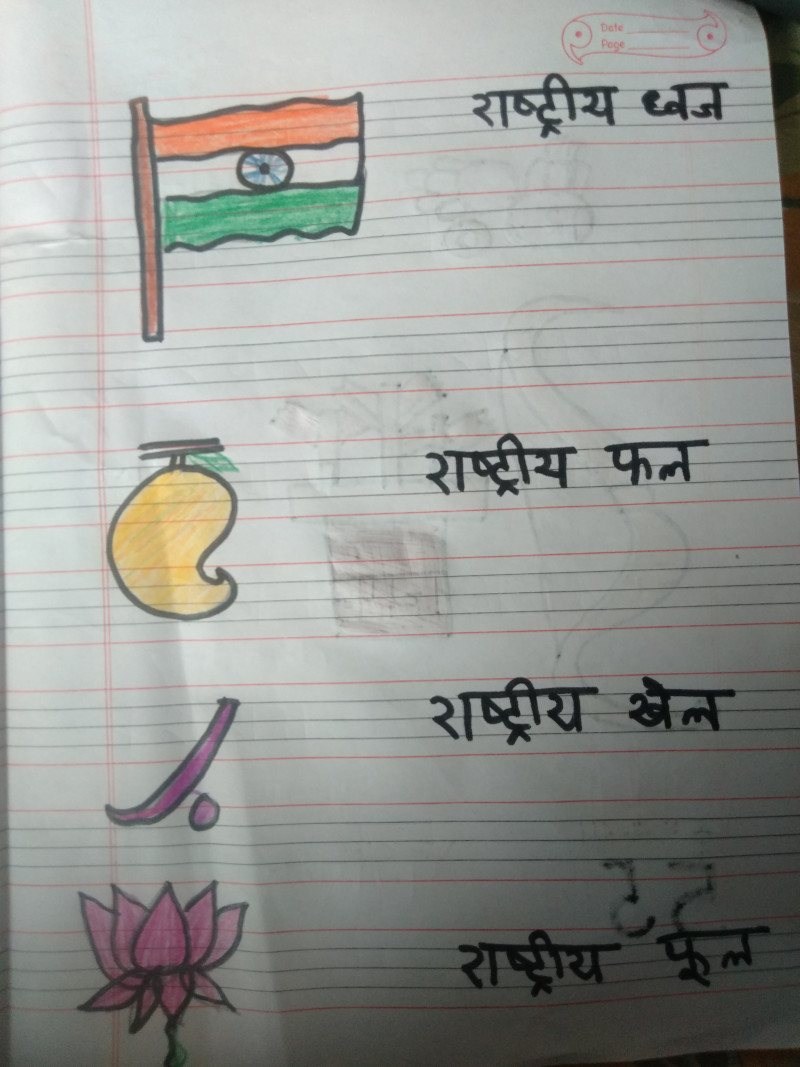 Date
Page
राष्ट्रीय ध्वज
राष्ट्रीय फल
राष्ट्रीय खेल
राष्ट्रीय फूल